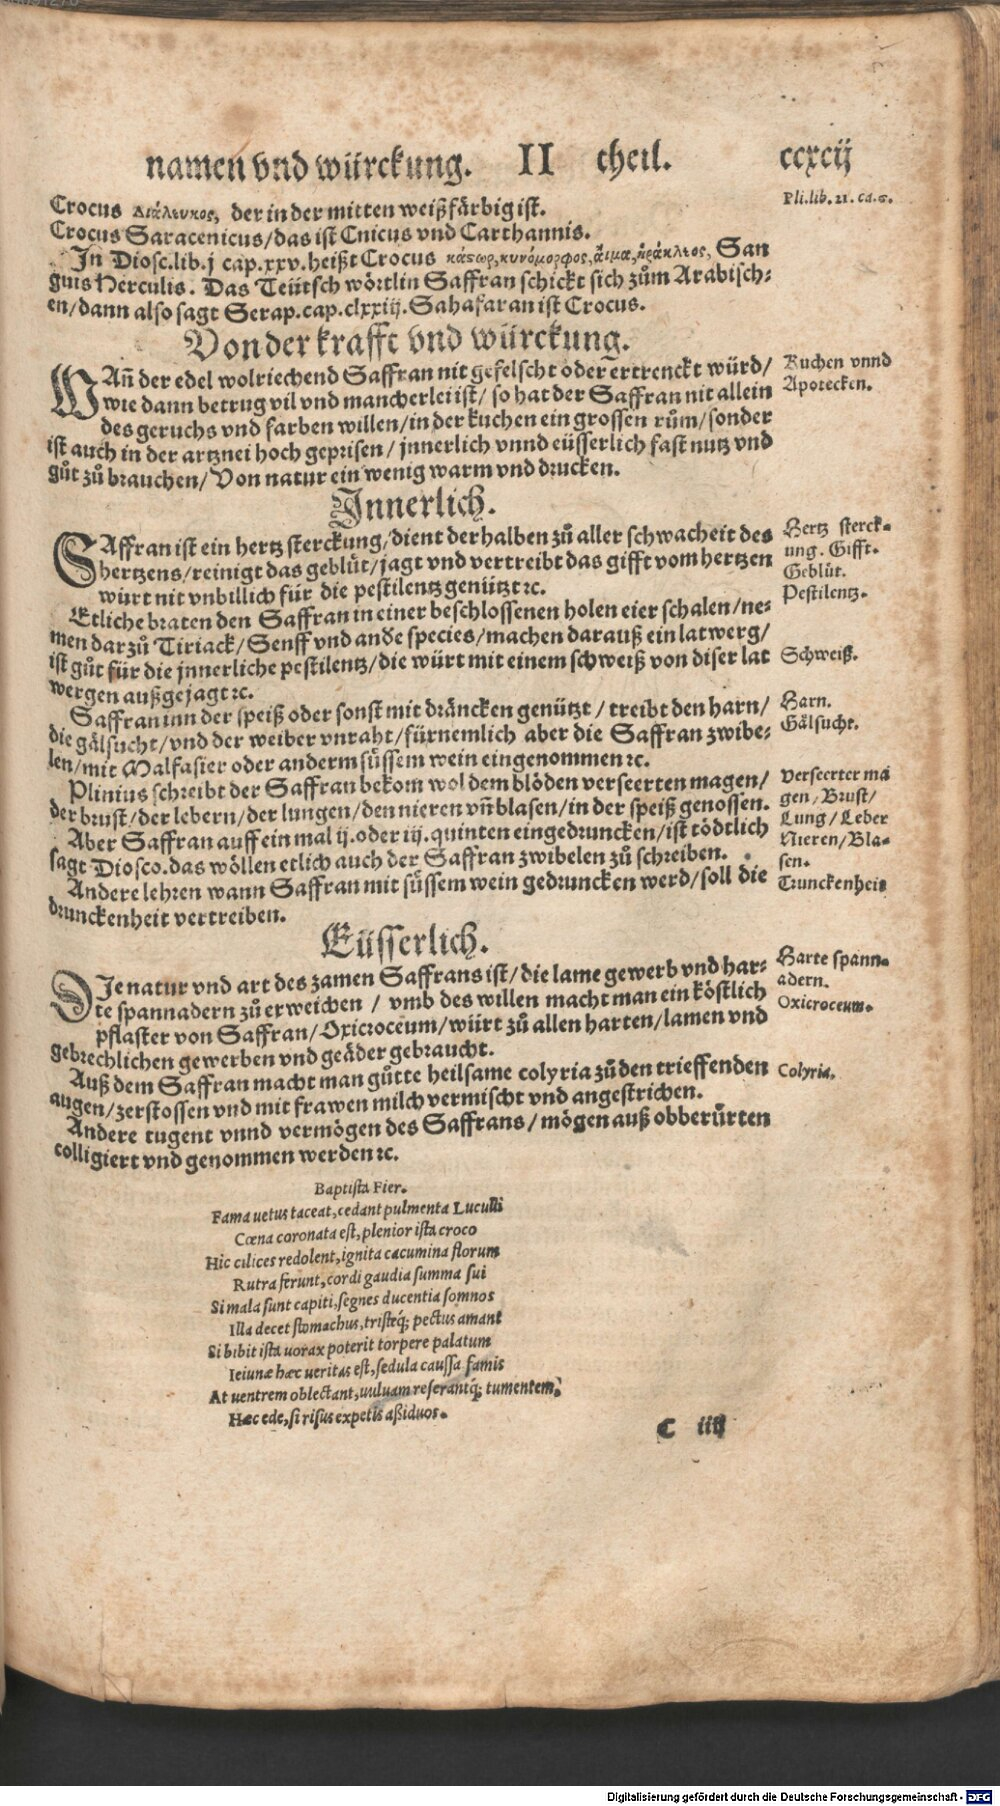 namen vnd würckung. II theil. ccxcij
Crocus Διάλευκος, der in der mitten weißfärbig ist.
Pli.lib.21.ca.6.
Crocus Saracenicus/das ist Cnicus vnd Carthannis.
In Diosc.lib.j cap.xxv.heißt Crocus κάστωρ,κυνόμορφος,ἅιμα,ἡράκλεος, San
guis Herculis. Das Teütsch wörtlin Saffran schickt sich zům Arabisch-
en/dann also sagt Serap.cap.clxxiij.Sahafaran ist Crocus.
Von der krafft vnd würckung.
WAñ der edel wolriechend Saffran nit gefelscht oder ertrenckt würd/
Kuchen vnnd
wie dann betrug vil vnd mancherlei ist/ so hat der Saffran nit allein
Apotecken.
des geruchs vnd farben willen/in der kuchen ein grossen rům/sonder
ist auch in der artznei hoch geprisen/ jnnerlich vnnd eüsserlich fast nutz vnd
gůt zů brauchen/Von natur ein wenig warm vnd drucken.
Innerlich.
SAffran ist ein hertz sterckung/dient derhalben zů aller schwacheit des
Hertz sterck-
hertzens/reinigt das geblüt/jagt vnd vertreibt das gifft vom hertzen
ung. Gifft.
würt nit vnbillich für die pestilentz genützt ꝛc.
Geblüt.
Pestilentz.
Etliche braten den Saffran in einer beschlossenen holen eier schalen/ne-
men darzů Tiriack/Senff vnd andẽ species/machen darauß ein latwerg/
ist gůt für die jnnerliche pestilentz/die würt mit einem schweiß von diser lat
Schweiß.
wergen außgejagt ꝛc.
Saffran inn der speiß oder sonst mit dräncken genützt / treibt den harn/
Harn.
die gälsucht/vnd der weiber vnraht/fürnemlich aber die Saffran zwibe-
Gälsucht.
len/mit Malfasier oder anderm süssem wein eingenommen ꝛc.
Plinius schreibt der Saffran bekom wol dem blöden verseerten magen/
Verseerter ma
der brust/der lebern/der lungen/den nieren vñ blasen/in der speiß genossen.
gen/Brust/
Lung/Leber
Aber Saffran auff ein mal ij.oder iij.quinten eingedruncken/ist tödtlich
Nieren/Bla-
sagt Diosco.das wöllen etlich auch der Saffran zwibelen zů schreiben.
sen.
Andere lehren wann Saffran mit süssem wein gedruncken werd/soll die
Trunckenheit
drunckenheit vertreiben.
Eüsserlich.
DIe natur vnd art des zamen Saffrans ist/die lame gewerb vnd har-
Harte spann-
te spannadern zů erweichen / vmb des willen macht man ein köstlich
adern.
pflaster von Saffran/Oxicroceum/würt zů allen harten/lamen vnd
Oxicroceum.
gebrechlichen gewerben vnd geäder gebraucht.
Auß dem Saffran macht man gůtte heilsame colyria zů den trieffenden
Colyria.
augen/zerstossen vnd mit frawen milch vermischt vnd angestrichen.
Andere tugent vnnd vermögen des Saffrans/mögen auß obberürten
colligiert vnd genommen werden ꝛc.
Baptista Fier.
Fama uetus taceat,cedant pulmenta Luculli
Cœna coronata est,plenior ista croco
Hic cilices redolent,ignita cacumina florum
Rutra ferunt,cordi gaudia summa sui
Si mala sunt capiti,segnes ducentia somnos
Illa decet stomachus,tristeq́; pectus amant
Si bibit ista uorax poterit torpere palatum
Ieiunæ hæc ueritas est,sedula caussa famis
At uentrem oblectant,uuluam reserantq́; tumentem
Hæc ede,si risus expetis aßiduos.
C iiij
Digitalisierung gefördert durch die Deutsche Forschungsgemeinschaft - DFG